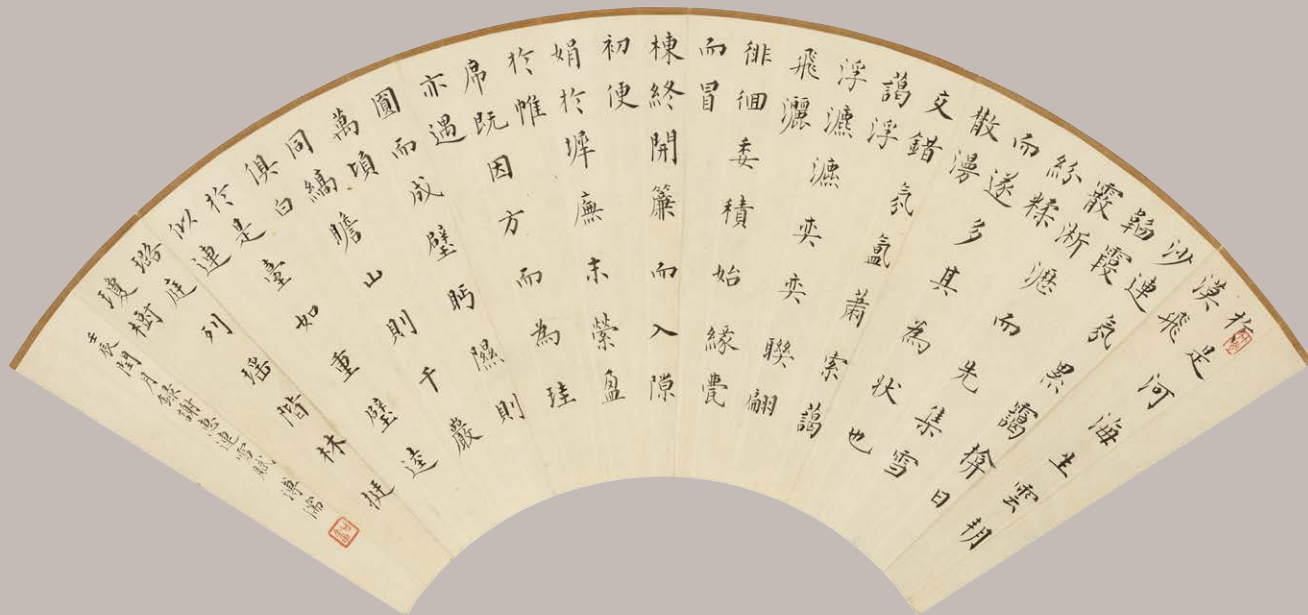 於是河海生雲朔
漠飛
沙連氛累靄揜日
韜霞
霰淅瀝而先集雪
紛糅
而遂多其為狀也
散漫
交錯氛氳蕭索藹
藹浮
浮瀌瀌奕奕聯翩
飛灑
徘徊委積始緣甍
而冒
棟終開簾而入隙
初便
娟於墀廡末縈盈
於帷
席既因方而為珪
亦遇
圓而成璧眄隰則
萬頃
同縞瞻山則千巖
俱白
於是臺如重璧逵
似連
璐庭列瑤階林挺
瓊樹
壬辰閏月錄謝惠連雪賦 溥儒